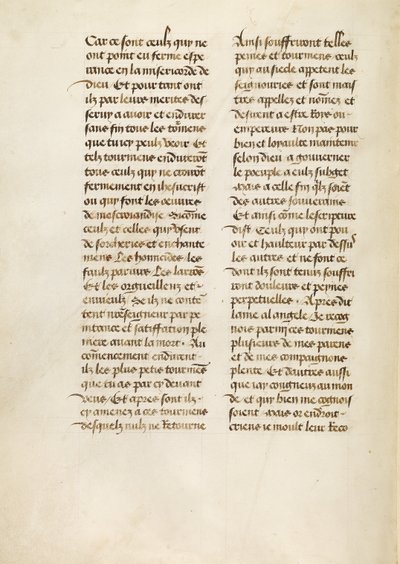 Car ce sont ceulx quy ne
ont point eu ferme espe
rance en la misericorde de
dieu Et pour tant ont
ilz par leurs merites des
seruy a auoir et endurer
sans fin tous les tormens
que tu icy peulx veoir Et
telz tourmens endureront
tous ceulx quy ne croient
fermement en ihesucrist
ou quy font les oeuures
de mescreandise Sicome
ceulx et celles quy vsent
de sorcheries et enchante
mens Les homecides les
faulx pariures Les larrons
Et les orgueilleux et
enuieulx Se ilz ne conte
tent nostre seigneur par pe
nitance et satiffation ple
niere auant la mort Au
commencement endurent
ilz les plus petis tourmens
que tu as par cy deuant
veus Et apres sont ilz
cy amenez a ces tourmens
desquelz nulz ne Retourne
Ainsi souffreront telles
peines et tourmens ceulx
quy au siecle appetent les
seignouries et sont mais
tres appellez et nommez et
desirent a estre Roys ou
empereurs Non pas pour
bien et loyaulte maintenir
selon dieu a gouuerner
le poeuple a eulx subget
Mais a celle fin quilz soient
des autres souuerains
Et ainsi come lescripture
dist Ceulx quy ont pou
oir et haulteur par dessus
les autres et ne font ce
dont ilz sont tenus souffri
ront douleurs et peynes
perpetuelles Apres dit
lame al angele Je recog
nois parmy ces tourmens
pluiseurs de mes parens
et de mes compaignons
plente Et dautres aussi
que iay congneus au mon
de et quy bien me cognois
soient Mais or endroit
criens ie moult leur Reco